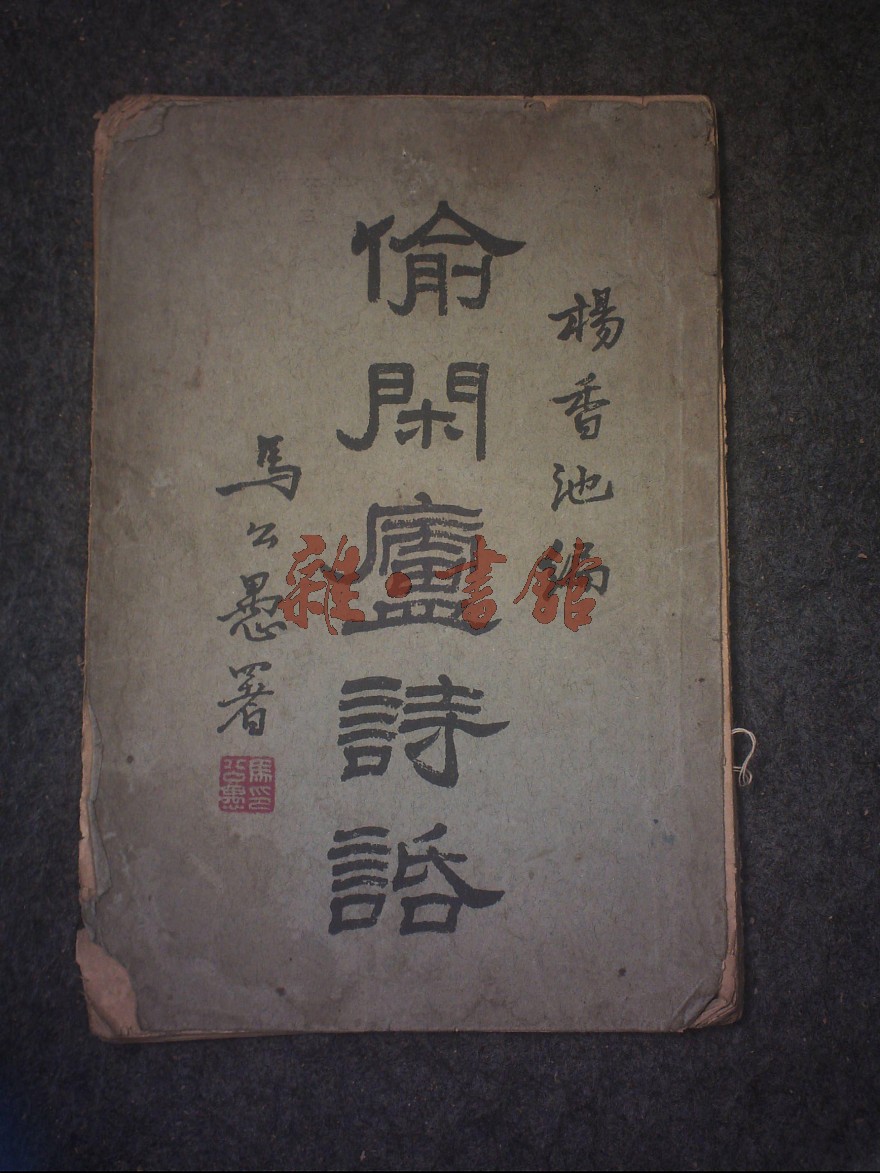 楊香池編
偷閑廬詩話
馬公愚署
馬公愚印
雜·書館